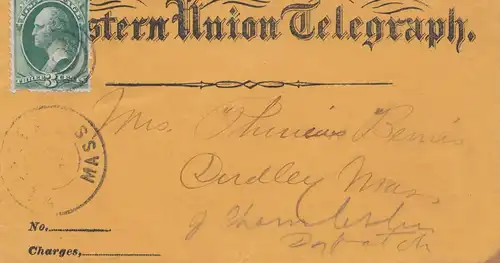 stern Union Telegraph.
THREE CENTS
3
MASS
Mrs. Thomas Bemis
Dudley Mass
No.
Charges,